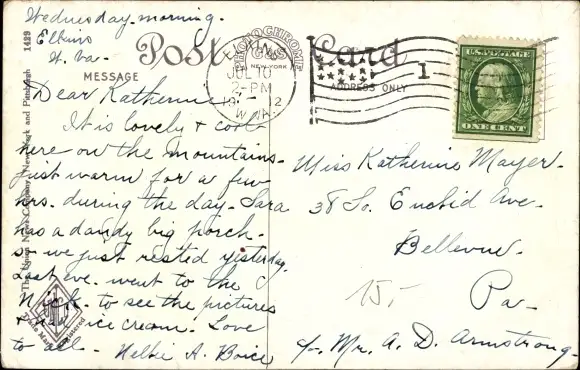 Wednesday morning.
Elkins
W. Va.
Post Card
PHOTOCHROME
NEW YORK
MESSAGE
ADDRESS ONLY
ELKINS
JUL 10
2-PM
W.VA.
1
U.S. POSTAGE
ONE CENT
1429
The Union News Company, New York and Pittsburgh
Trade Mark Registered
Dear Katherine
It is lovely & cool
here on the mountains.
Just warm for a few
hrs. during the day. Sara
has a dandy big porch.
so we just rested yesterday.
Last eve. went to the
Nick. to see the pictures
& ice cream. Love
to all. Nellie A. Boice
Miss Katherine Mayer.
38 So. Euclid Ave.
Bellevue.
Pa.
15,-
c/o Mr. A. D. Armstrong.